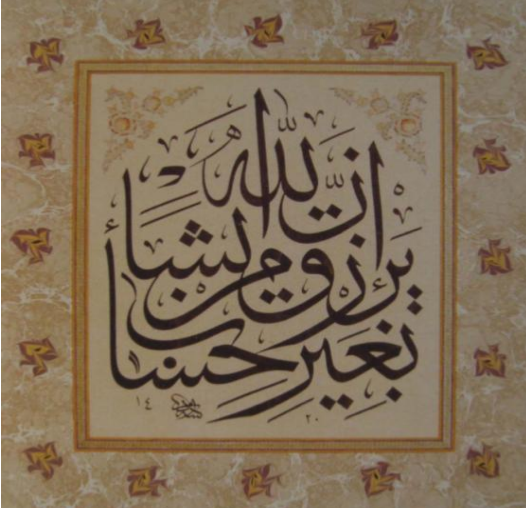 انّ اللّه
يرزق من يشاء
بغير حساب
١٤ ٢٠